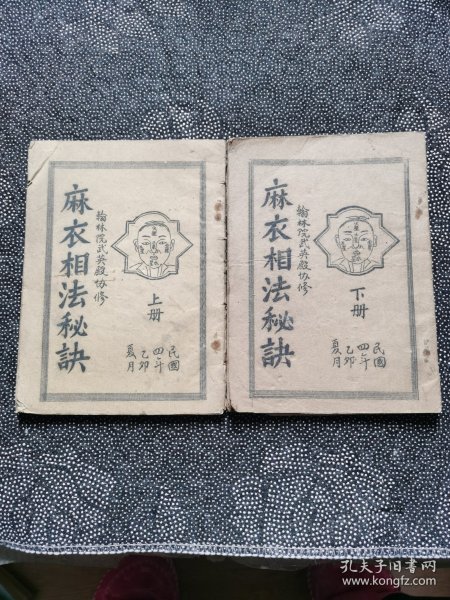 麻衣相法秘訣
翰林院武英殿协修
上册
民國
四年
乙卯
夏月
麻衣相法秘訣
翰林院武英殿协修
下册
民國
四年
乙卯
夏月
孔夫子旧书网
www.kongfz.com